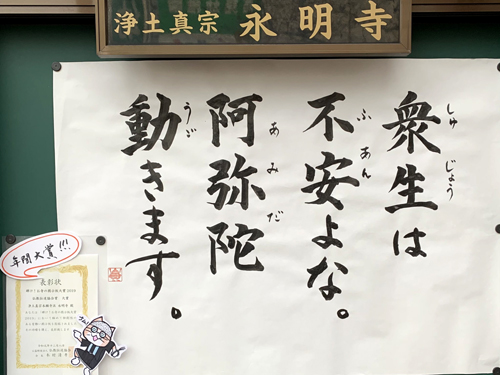 浄土真宗 永明寺
衆生は
しゅじょう
不安よな。
ふあん
阿弥陀
あみだ
動きます。
うご
年間大賞!!!
表彰状